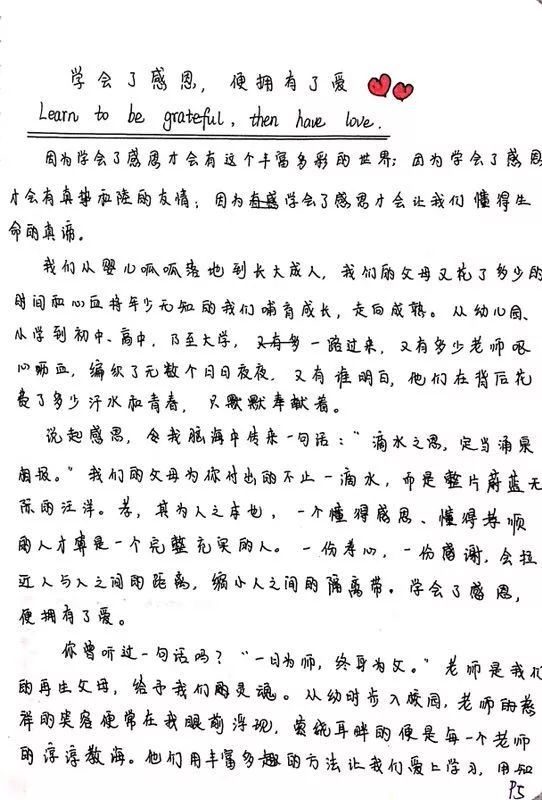 学会了感恩，便拥有了爱
Learn to be grateful, then have love.
因为学会了感恩才会有这个丰富多彩的世界；因为学会了感恩
才会有真挚和睦的友情；因为学会了感恩才会让我们懂得生
命的真谛。
我们从婴儿呱呱落地到长大成人，我们的父母又花了多少的
时间和心血将年少无知的我们哺育成长，走向成熟。从幼儿园、
小学到初中、高中，乃至大学，一路过来，又有多少老师呕
心呖血，编织了无数个日日夜夜，又有谁明白，他们在背后花
费了多少汗水和青春，只默默奉献着。
说起感恩，令我脑海中传来一句话："滴水之恩，定当涌泉
相报。"我们的父母为你付出的不止一滴水，而是整片蔚蓝无
际的汪洋。孝，其为人之本也，一个懂得感恩、懂得孝顺
的人才算是一个完整充实的人。一份孝心，一份感谢，会拉
近人与人之间的距离，缩小人之间的隔离带。学会了感恩，
便拥有了爱。
你曾听过一句话吗？"一日为师，终身为父。"老师是我们
的再生父母，给予我们的灵魂。从幼时步入校园，老师的慈
祥的笑容便常在我眼前浮现，萦绕耳畔的便是每一个老师
的谆谆教诲。他们用丰富多趣的方法让我们爱上学习，用知
P5